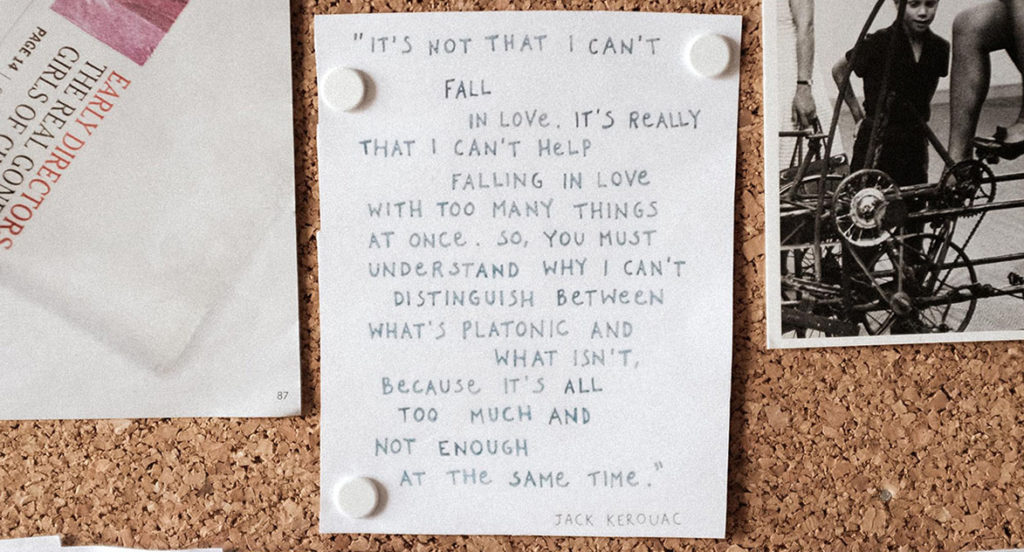 "IT'S NOT THAT I CAN'T
FALL
IN LOVE. IT'S REALLY
THAT I CAN'T HELP
FALLING IN LOVE
WITH TOO MANY THINGS
AT ONCE. SO, YOU MUST
UNDERSTAND WHY I CAN'T
DISTINGUISH BETWEEN
WHAT'S PLATONIC AND
WHAT ISN'T,
BECAUSE IT'S ALL
TOO MUCH AND
NOT ENOUGH
AT THE SAME TIME."
JACK KEROUAC
PAGE 14
EARLY DIRECTORS
THE REAL
GIRLS OF
87